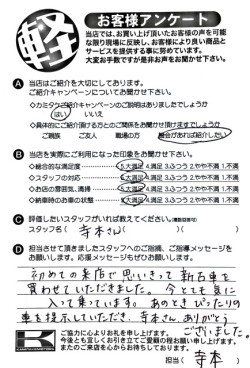 軽
お客様アンケート
当店では、お買い上げ頂いたお客様の声を可能
な限り現場に反映し、お客様により良い商品と
サービスを提供する事に努めています。
大変お手数ですが是非お声をお聞かせ下さい。
A 当店はご紹介を大切にしております。
ご紹介キャンペーンについてお聞かせ下さい。
◇カミタケご紹介キャンペーンのご説明はありましたでしょうか
はい いいえ
◇具体的にご紹介頂ける方とのご関係をお聞かせ頂けますでしょうか
ご親族 ご友人 職場の方 機会があれば紹介したい
B 当店を実際にご利用になった印象をお聞かせ下さい。
◇総合的な満足度 5.大満足 4.満足 3.ふつう 2.やや不満 1.不満
◇スタッフの対応 5.大満足 4.満足 3.ふつう 2.やや不満 1.不満
◇お店の雰囲気、清掃 5.大満足 4.満足 3.ふつう 2.やや不満 1.不満
◇納車時のお車の状態 5.大満足 4.満足 3.ふつう 2.やや不満 1.不満
C 評価したいスタッフがいれば教えてください。(複数回答可)
スタッフ名 ( 寺本さん )( )
D 担当させて頂きましたスタッフへのご指摘、ご指導メッセージを
お願いします。応援メッセージもぜひお願いします。
初めての来店で思いきって新古車を
買わせていただきました。今とても気に
入って乗っています。あのときぴったりの
車を提示していただき、寺本さん、ありがとう
ございました。
ご協力に心よりお礼を申し上げます。
今後とも宜しくお引き立てご愛顧の程お願い申し上げます。
またのご来店を心からお待ちしております。
担当 ( 寺本 )